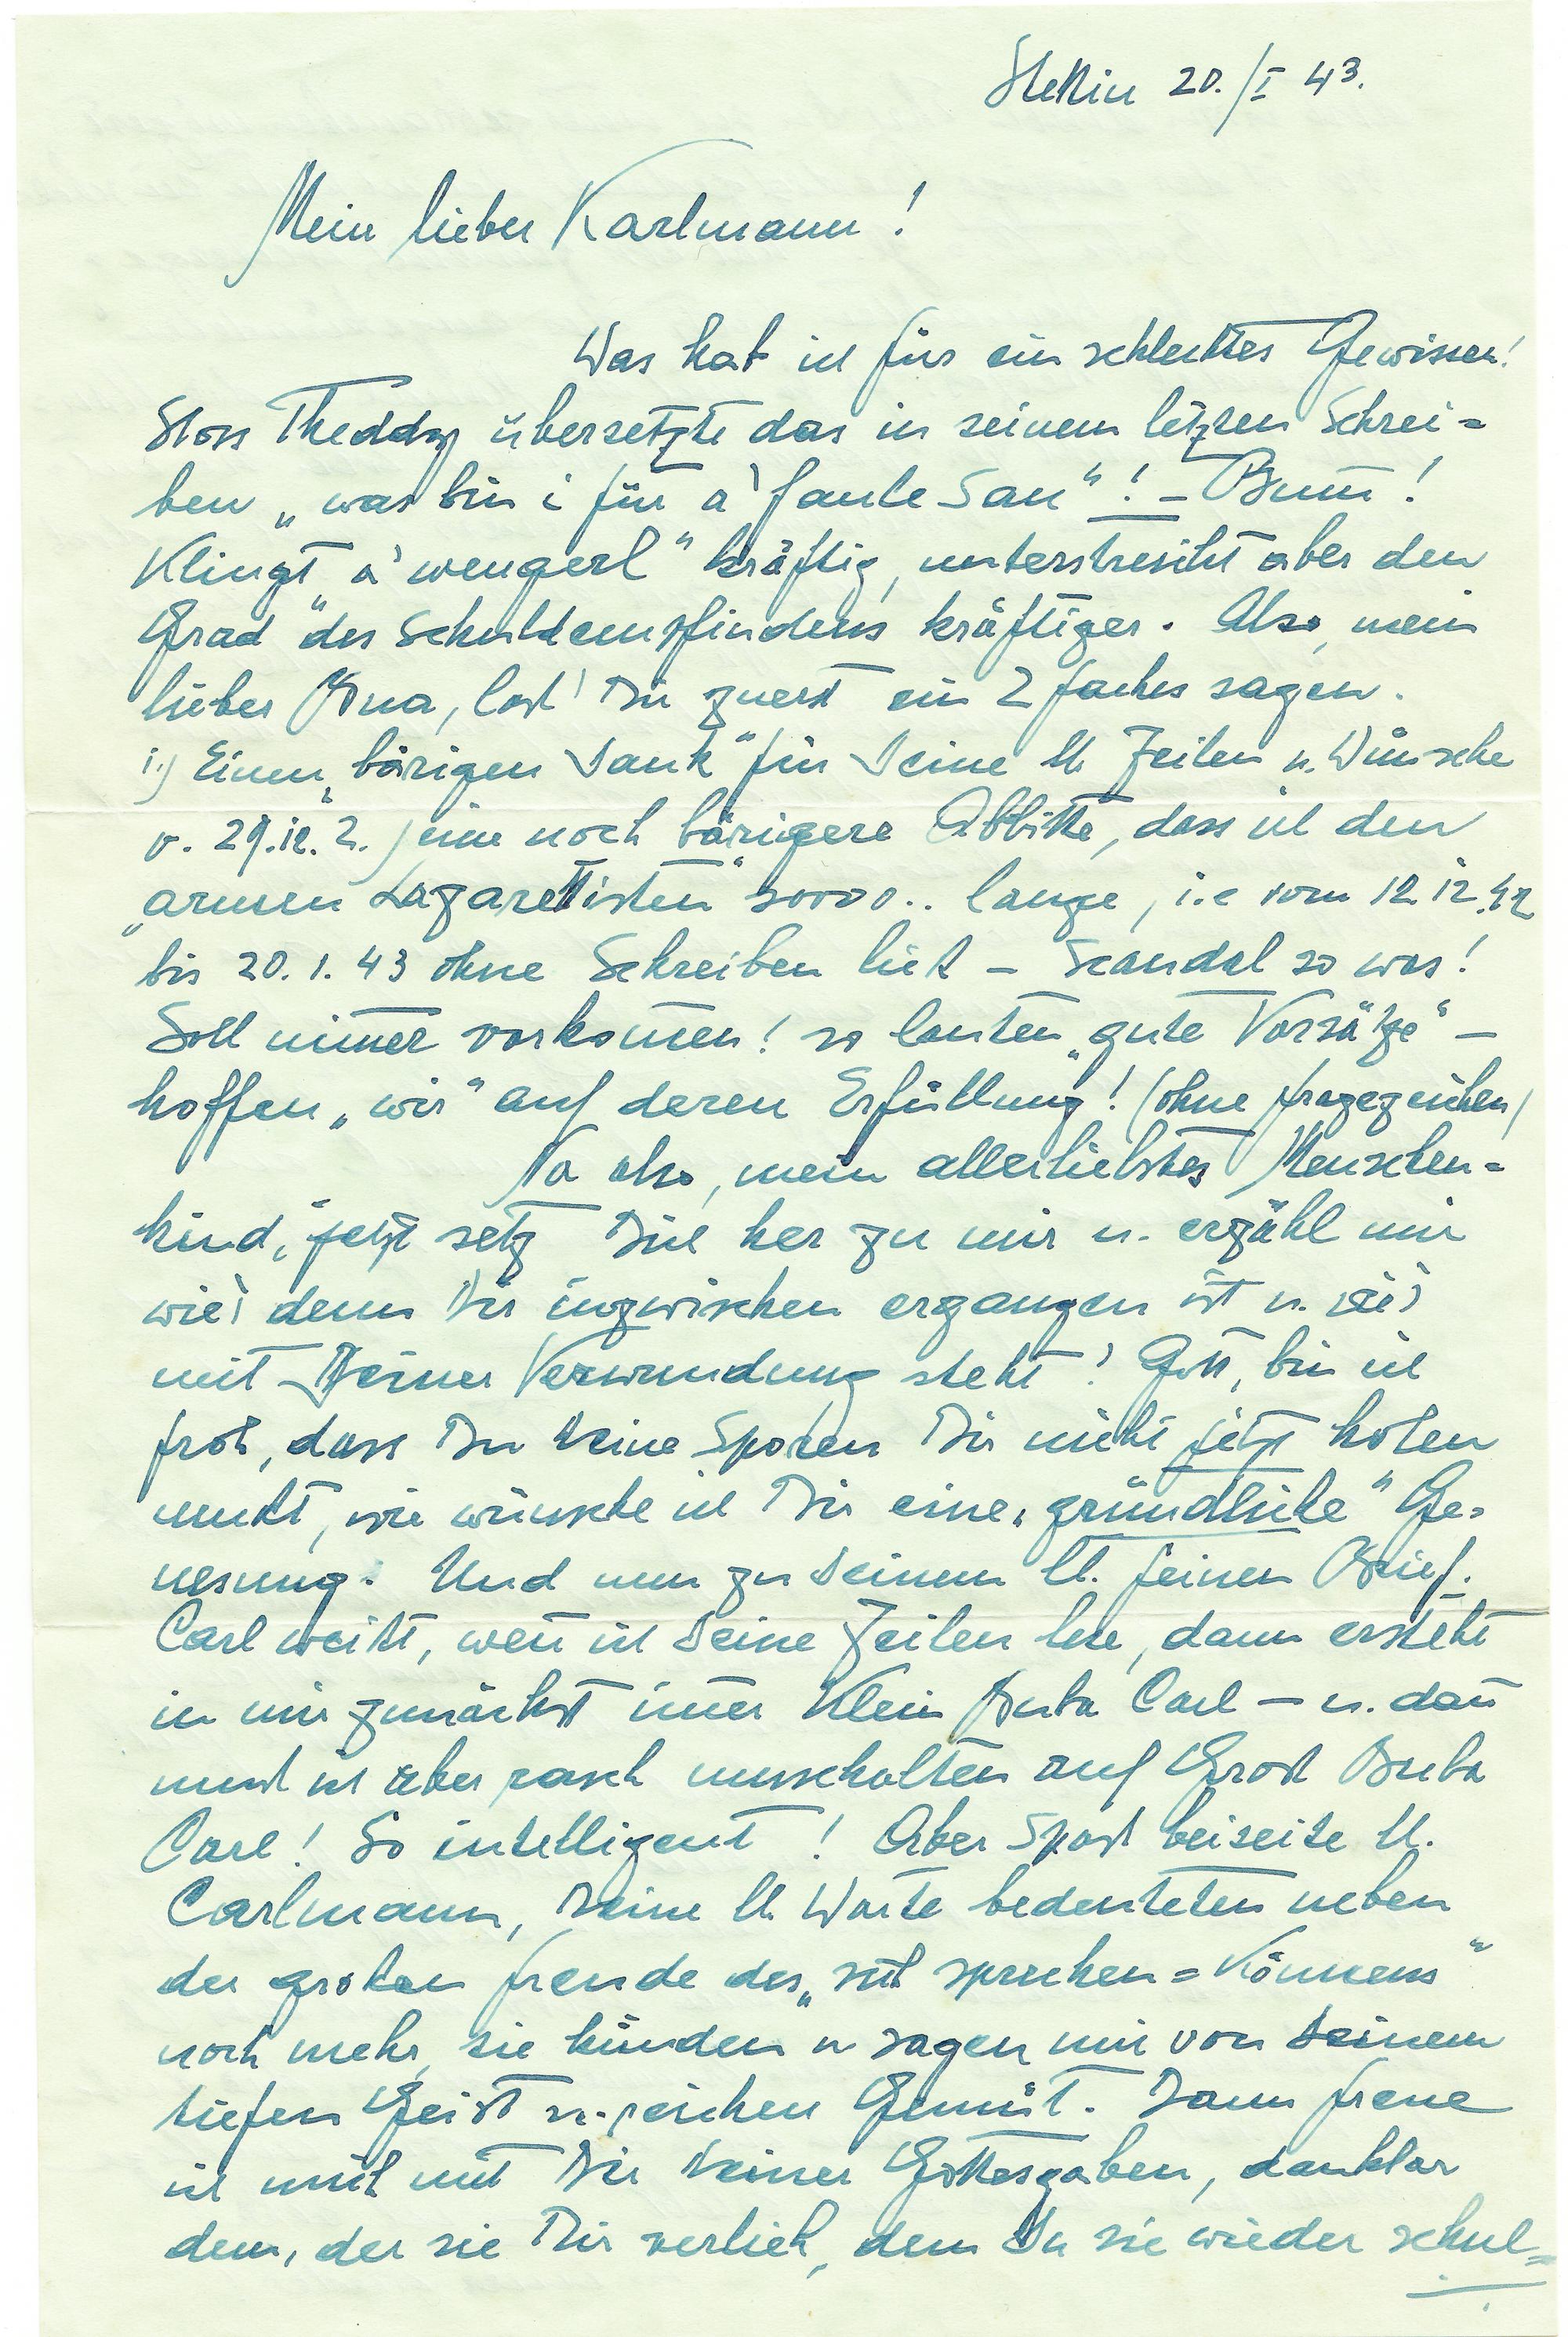 Stettin 20./I 43.
Mein lieber Karlmann!
Was hab ich für ein schlechtes Gewissen!
Stoss Theddy übersetzte das in seinem letzten Schrei=
ben „was bin i für a' faule Sau"! – Bum̅!
Klingt „a' wengerl" kräftig, unterstreicht aber den
Grad des Schuldempfindens kräftiger. Also, mein
lieber Bua, laß' Dir zuerst ein 2faches sagen.
1.) Einen „bärigen Dank" für Deine lb. Zeilen u. Wünsche
v. 29.12. 2.) eine noch bärigere Abbitte, dass ich den
„armen Lazarettisten" soooo.. lange, i.e vom 12.12.42
bis 20.1.43 ohne Schreiben ließ – Scandal so was!
Soll nim̅er vorkom̅en! so lauten „gute Vorsätze" –
hoffen „wir" auf deren Erfüllung! (ohne Fragezeichen)
Na also, mein allerliebstes Menschen=
kind, jetzt setz Dich her zu mir u. erzähl mir
wie's denn Dir inzwischen ergangen ist u. wie's
mit Deiner Verwundung steht! Gott, bin ich
froh, dass Du Deine Sporen Dir nicht jetzt holen
mußt, wie wünsche ich Dir eine „gründliche" Ge=
nesung. Und nun zu Deinem lb. feinen Brief.
Carl weißt, wen̅ ich Deine Zeilen lese, dann ersteht
in mir zunächst im̅er Klein Buba Carl – u. dan̅
muß ich aber rasch umschalten auf Groß Buba
Carl! So intelligent! Aber Spaß beiseite lb.
Carlmann, Deine lb. Worte bedeuteten neben
der großen Freude des „sich sprechen=Könnens"
noch mehr, sie künden u sagen mir von Deinem
tiefen Geist u. reichen Gemüt. Dann freue
ich mich mit Dir Deiner Gottesgaben, dankbar
dem, der sie Dir verlieh, dem Du sie wieder schul=